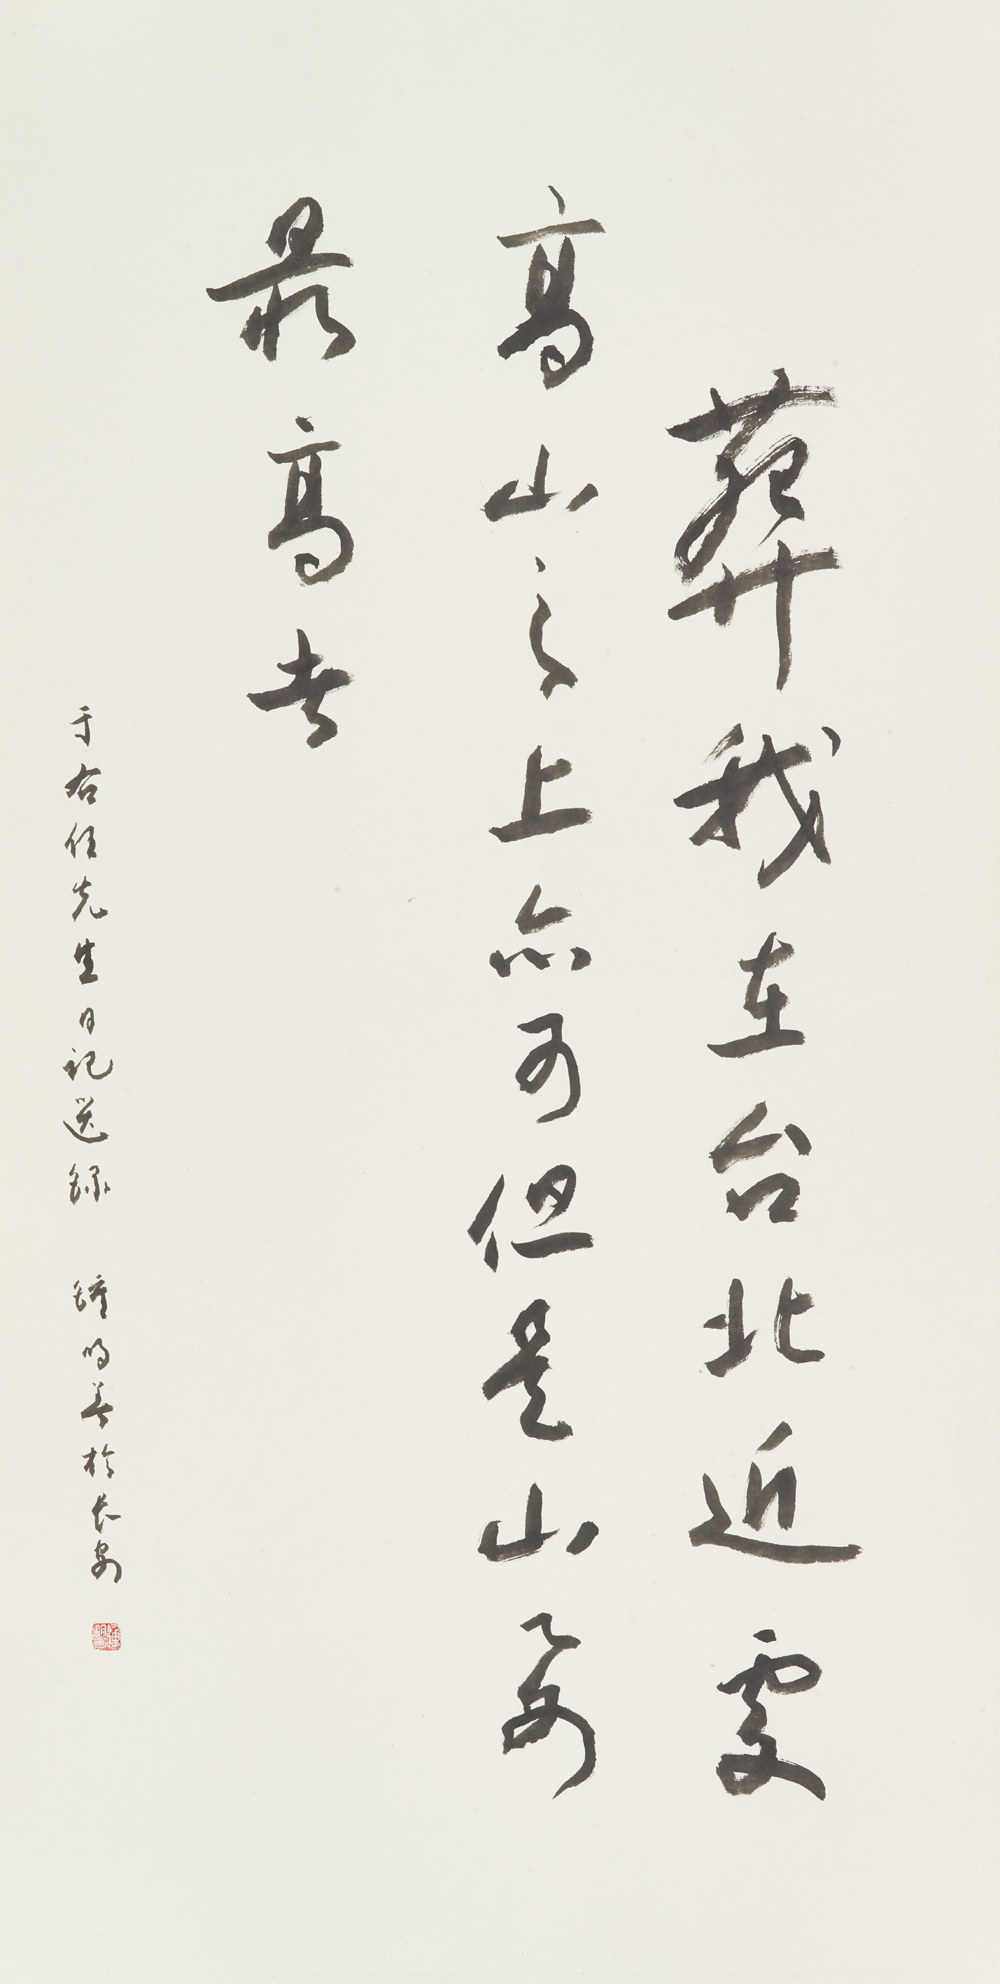 葬我在台北近處
高山之上亦可但是山要
最高者
于右任先生日記選錄 鍾明善於長安